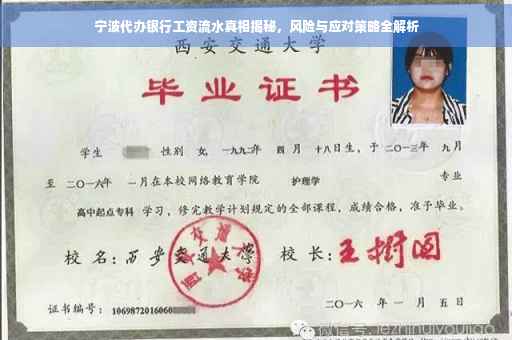 宁波代办银行工资流水真相揭秘，风险与应对策略全解析
西安交通大学
毕业证书
学生 性别 女，一九九二年 四月 十八日生，于二〇一三年 九月
至 二〇一六年 一月在本校网络教育学院 护理学 专业
高中起点专科 学习，修完教学计划规定的全部课程，成绩合格，准予毕业。
校 名：西安交通大学 校 长：王树国
西安交通大学
证书编号：1069872016060
二〇一六年一月五日
微信号: jezhihuiyoujiao